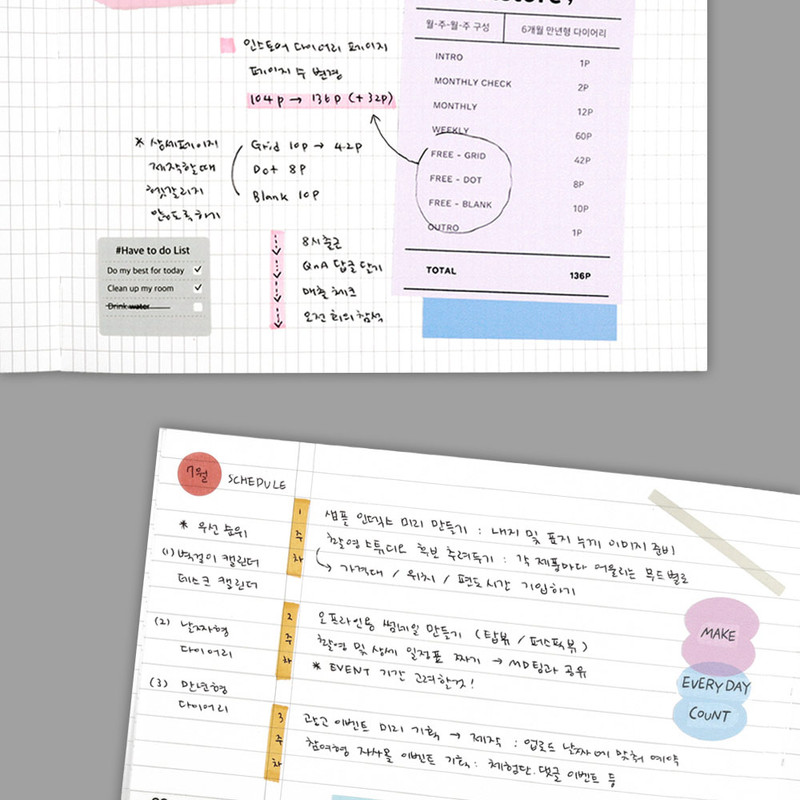 월·주·월·주 구성 6개월 만년형 다이어리
INTRO 1P
MONTHLY CHECK 2P
MONTHLY 12P
WEEKLY 60P
FREE - GRID 42P
FREE - DOT 8P
FREE - BLANK 10P
OUTRO 1P
TOTAL 136P
인스토어 다이어리 페이지
페이지 수 변경
104p → 136p (+32p)
* 상세페이지
제작할때
헷갈리지
않도록하기
Grid 10p → 42p
Dot 8p
Blank 10p
#Have to do List
Do my best for today ✓
Clean up my room ✓
Drink water
8시출근
QnA 답글 달기
매출 체크
오전 회의 참석
7월 SCHEDULE
* 우선 순위
(1) 벽걸이 캘린더
데스크 캘린더
(2) 날짜형
다이어리
(3) 만년형
다이어리
1주차
샘플 인덱스 미리 만들기 : 내지 및 표지 누끼 이미지 준비
촬영 스튜디오 후보 추려두기 : 각 제품마다 어울리는 무드별로
↳ 가격대 / 위치 / 편도시간 기입하기
2주차
오프라인용 썸네일 만들기 (탑뷰 / 퍼스펙뷰)
촬영 및 상세 일정표 짜기 → MD팀과 공유
* EVENT 기간 고려할것!
3주차
광고 이벤트 미리 기획 → 제작 : 업로드 날짜에 맞춰 예약
참여형 자사몰 이벤트 기획 : 체험단, 댓글 이벤트 등
MAKE
EVERYDAY
COUNT